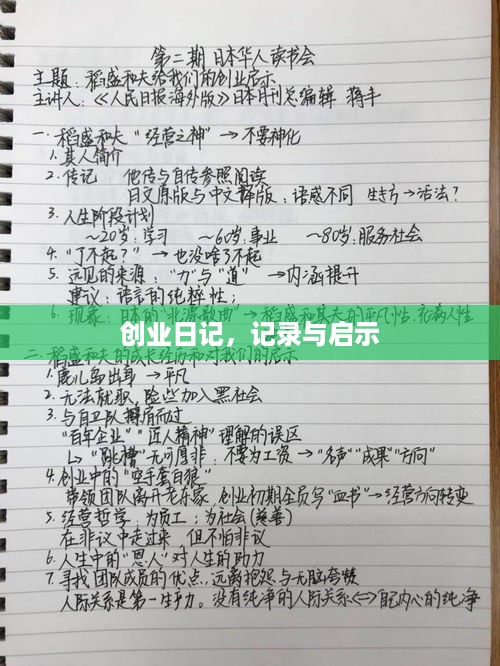 第二期 日本华人读书会
主题：稻盛和夫给我们的创业启示
主讲人：《人民日报海外版》日本月刊总编辑 蒋丰
一. 稻盛和夫 "经营之神" → 不要神化
1. 其人简介
2. 传记： 他传与自传参照阅读
日文原版与中文释版：语感不同 生き方→活法？
3. 人生阶段计划
～20岁：学习 ～60岁：事业 ～80岁：服务社会
4. "了不起？" → 也没啥了不起
5. 远见的来源："力"与"道" →内涵提升
建议：语言的纯粹性；
6. 现象：日本的"北漂散曲"→稻盛和夫的平凡性，充满人性
创业日记，记录与启示
二. 稻盛和夫的成长经历和对我们的启示
1. 鹿儿岛出身 → 平凡
2. 无法就职，险些加入黑社会
3. 与自卫队擦肩而过
"百年企业" "匠人精神" 理解的误区
↳ "跳槽" 无可厚非. 不要为工资 → "名声" "成果" "方向"
4. 创业中的 "空手套白狼"
带领团队离开老东家，创业初期全员写"血书"→经营方向转变
5. 经营哲学：为员工；为社会(慈善)
在非议中走过来 但不怕非议
6. 人生中的 "恩人" 对人生的助力
7. 寻找团队成员的优点，远离抱怨与无脑夸赞
人际关系是第一生产力。没有纯净的人际关系<=>自己内心的纯净